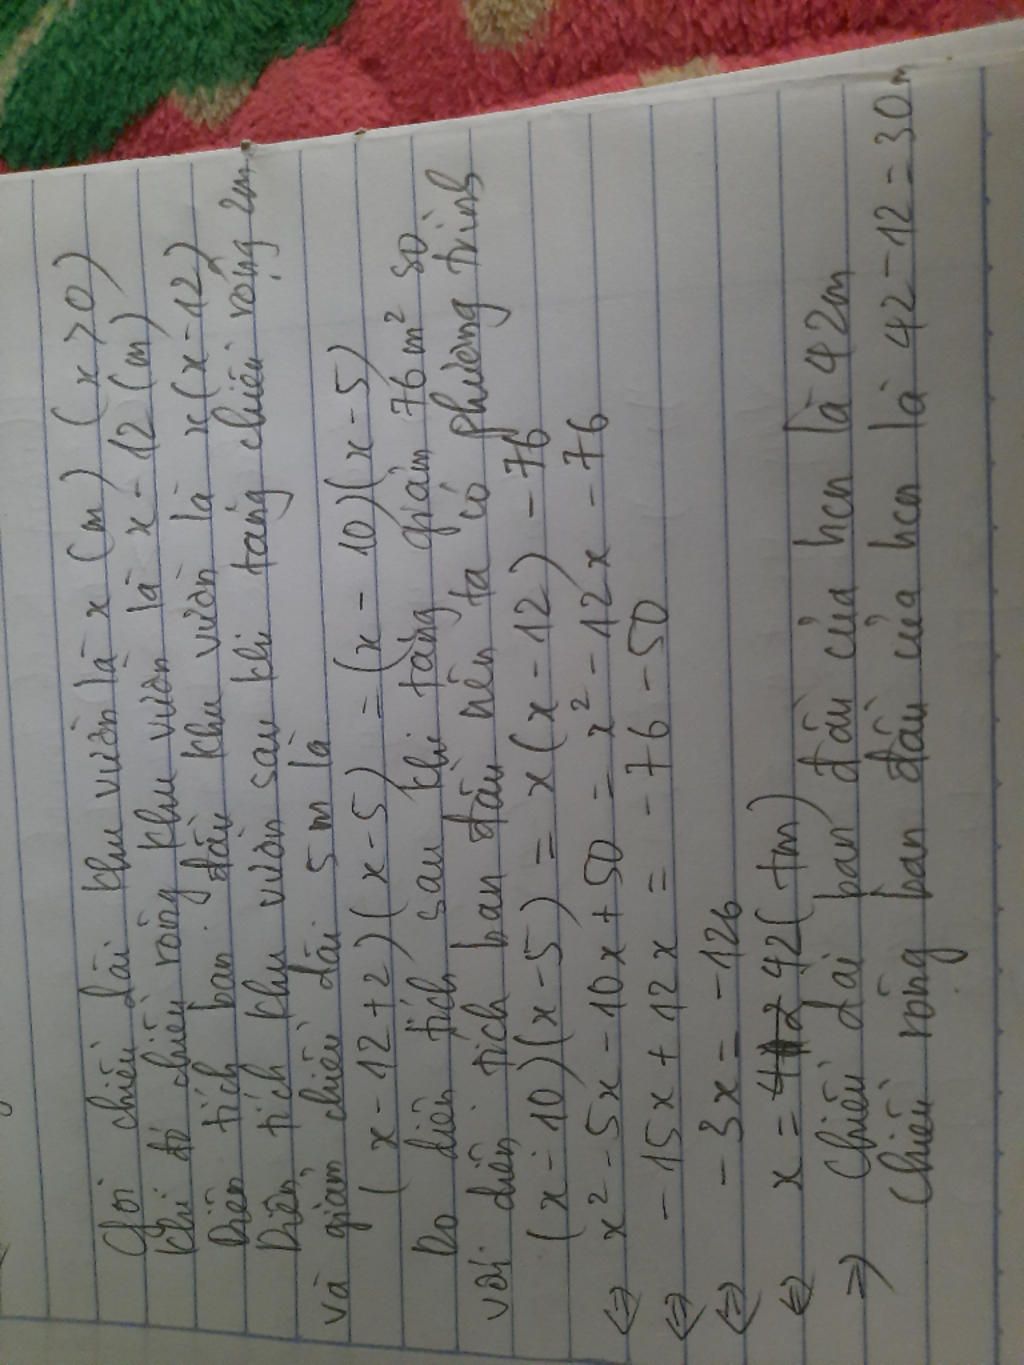 Gọi chiều dài khu vườn là x (m) (x > 0)
Khi đó chiều rộng khu vườn là x - 12 (m)
Diện tích ban đầu khu vườn là x(x - 12)
Diện tích khu vườn sau khi tăng chiều rộng 2m
và giảm chiều dài 5 m là
(x - 12 + 2)(x - 5) = (x - 10)(x - 5)
Do diện tích sau khi tăng giảm 76 m² so
với diện tích ban đầu nên ta có phương trình
(x - 10)(x - 5) = x(x - 12) - 76
⇔ x² - 5x - 10x + 50 = x² - 12x - 76
⇔ - 15x + 12x = - 76 - 50
⇔ - 3x = - 126
⇔ x = 42 (tm)
⇒ Chiều dài ban đầu của hcn là 42m
Chiều rộng ban đầu của hcn là 42 - 12 = 30 m